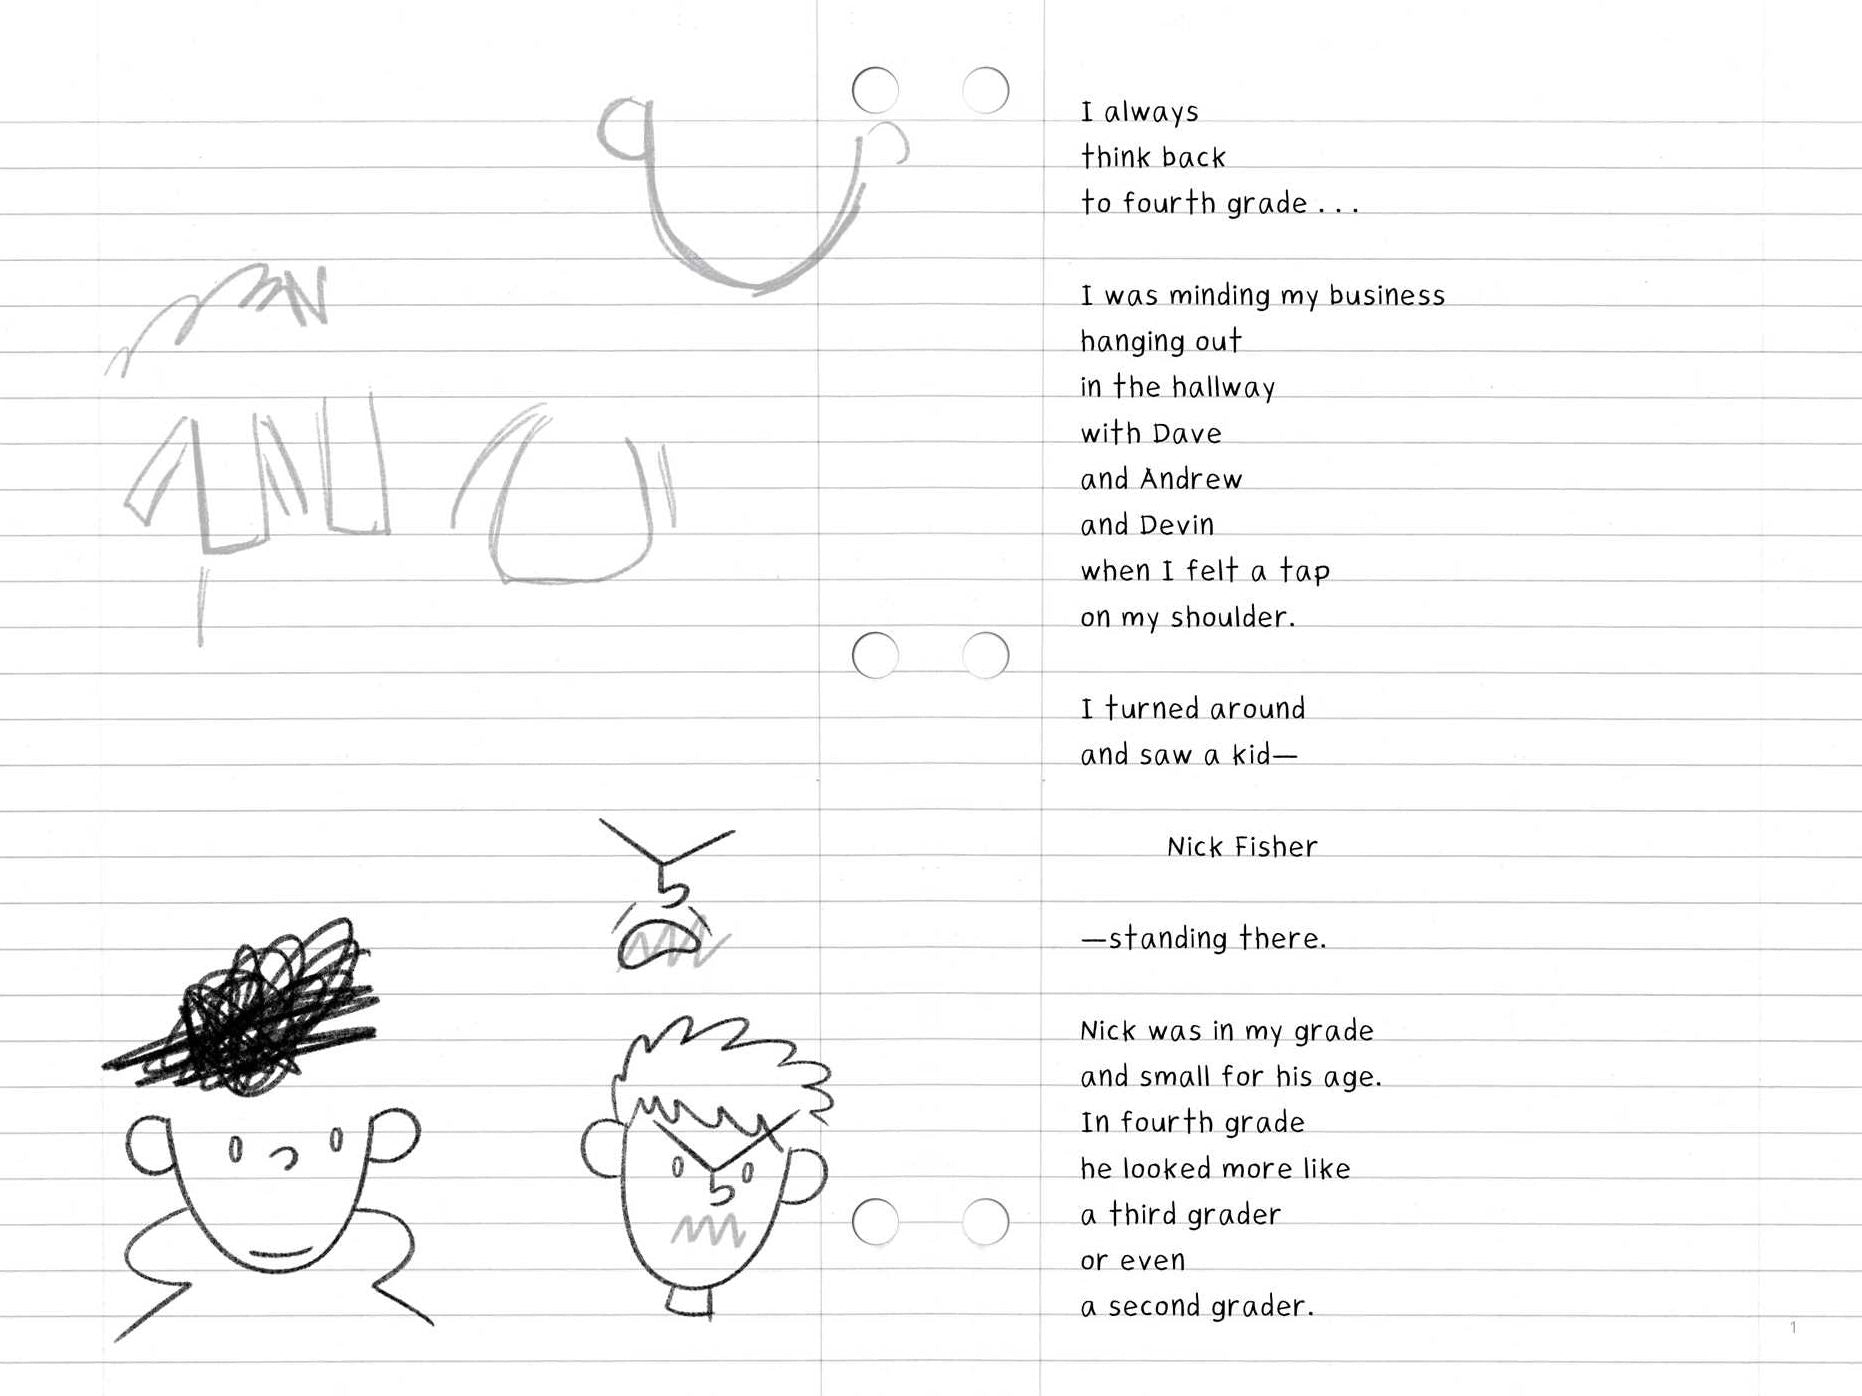 I always
think back
to fourth grade . . .
I was minding my business
hanging out
in the hallway
with Dave
and Andrew
and Devin
when I felt a tap
on my shoulder.
I turned around
and saw a kid—
Nick Fisher
—standing there.
Nick was in my grade
and small for his age.
In fourth grade
he looked more like
a third grader
or even
a second grader.
1